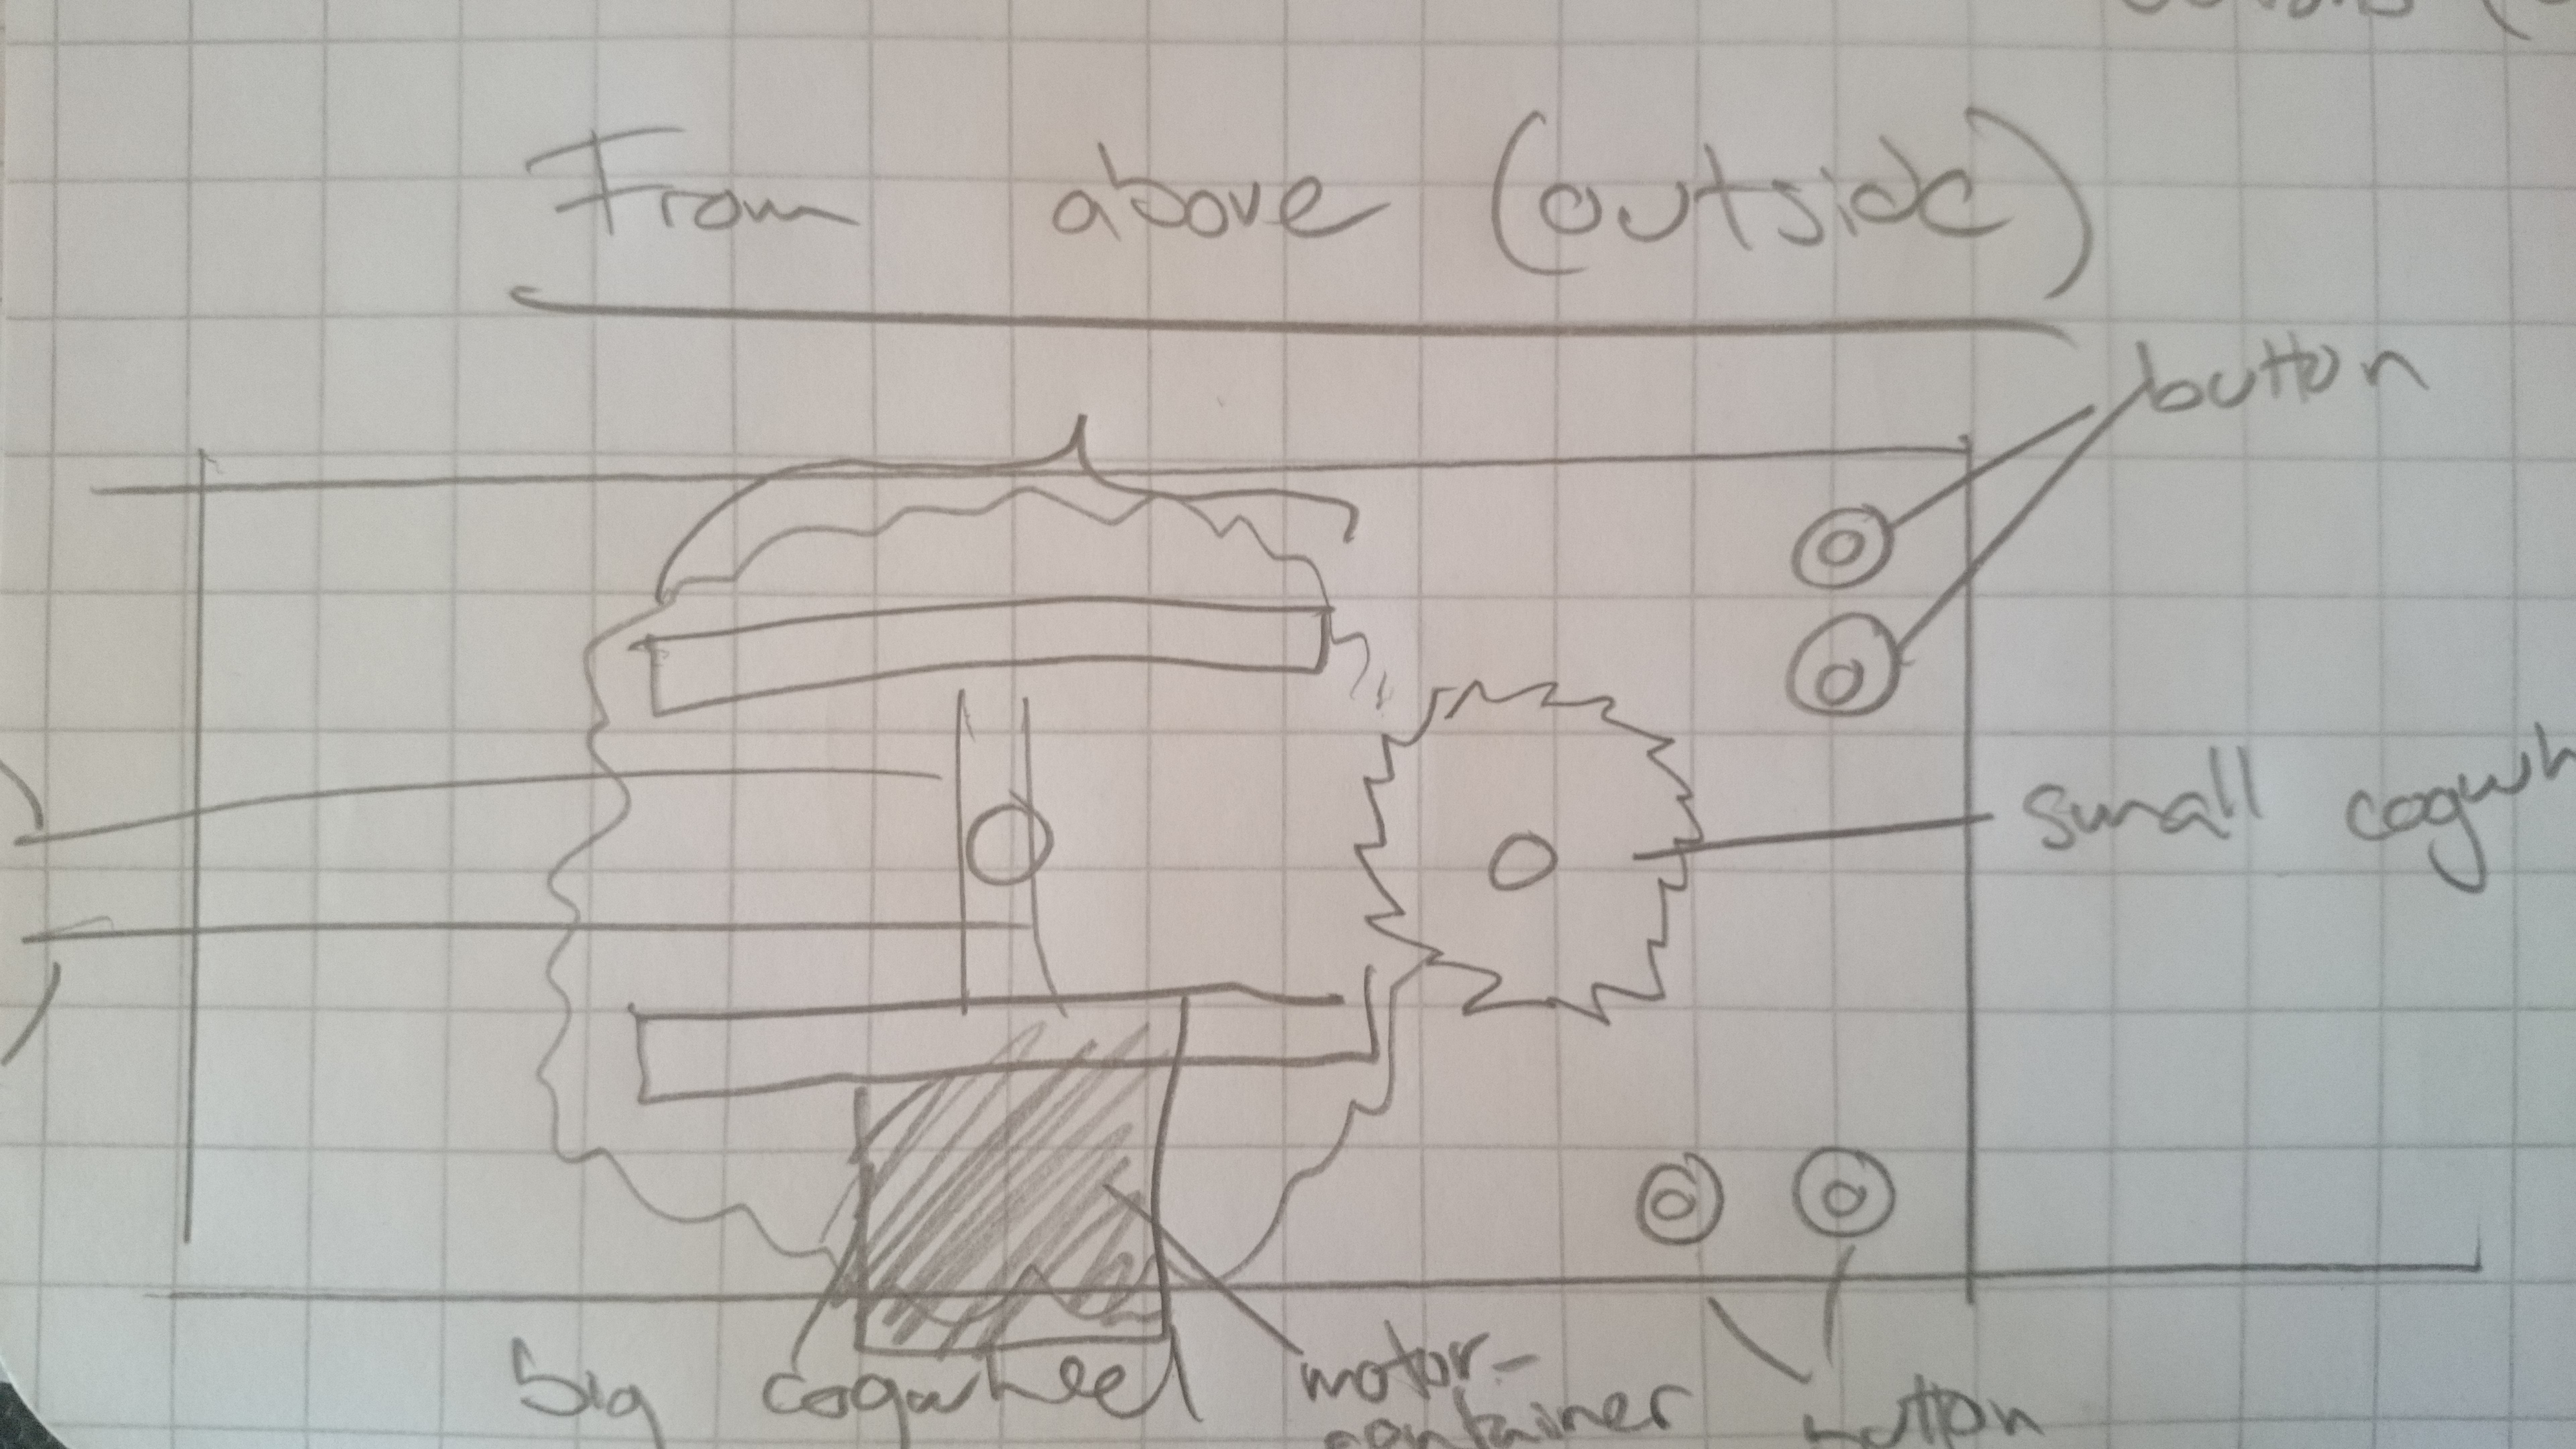 From above (outside)
button
small cogwh
big cogwheel
motor-
container
button